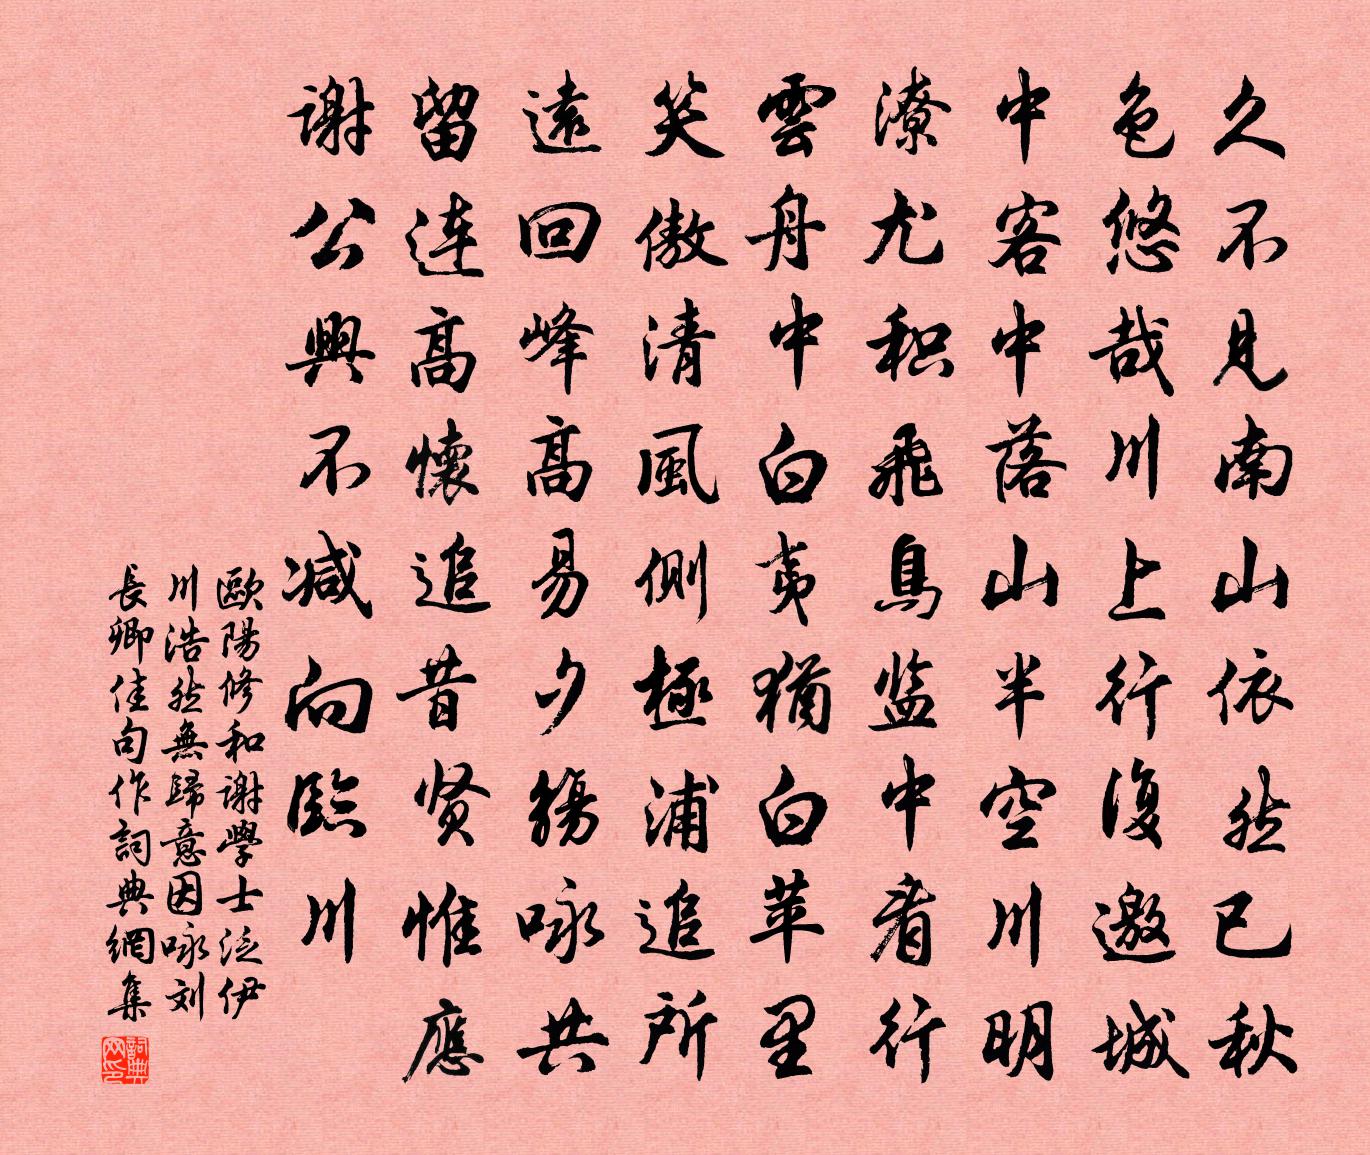 久不見南山依然已秋
色悠哉川上行復邀城
中客中落山半空川明
潦尤积飛鳥监中看行
雲舟中白夷猶白苹里
笑傲清風側極浦追所
遠回峰高易夕觴咏共
留连高懷追昔贤惟應
谢公興不减向臨川
歐陽修和谢學士泛伊
川浩然無歸意因咏刘
長卿佳句作詞典網集
詞典网印